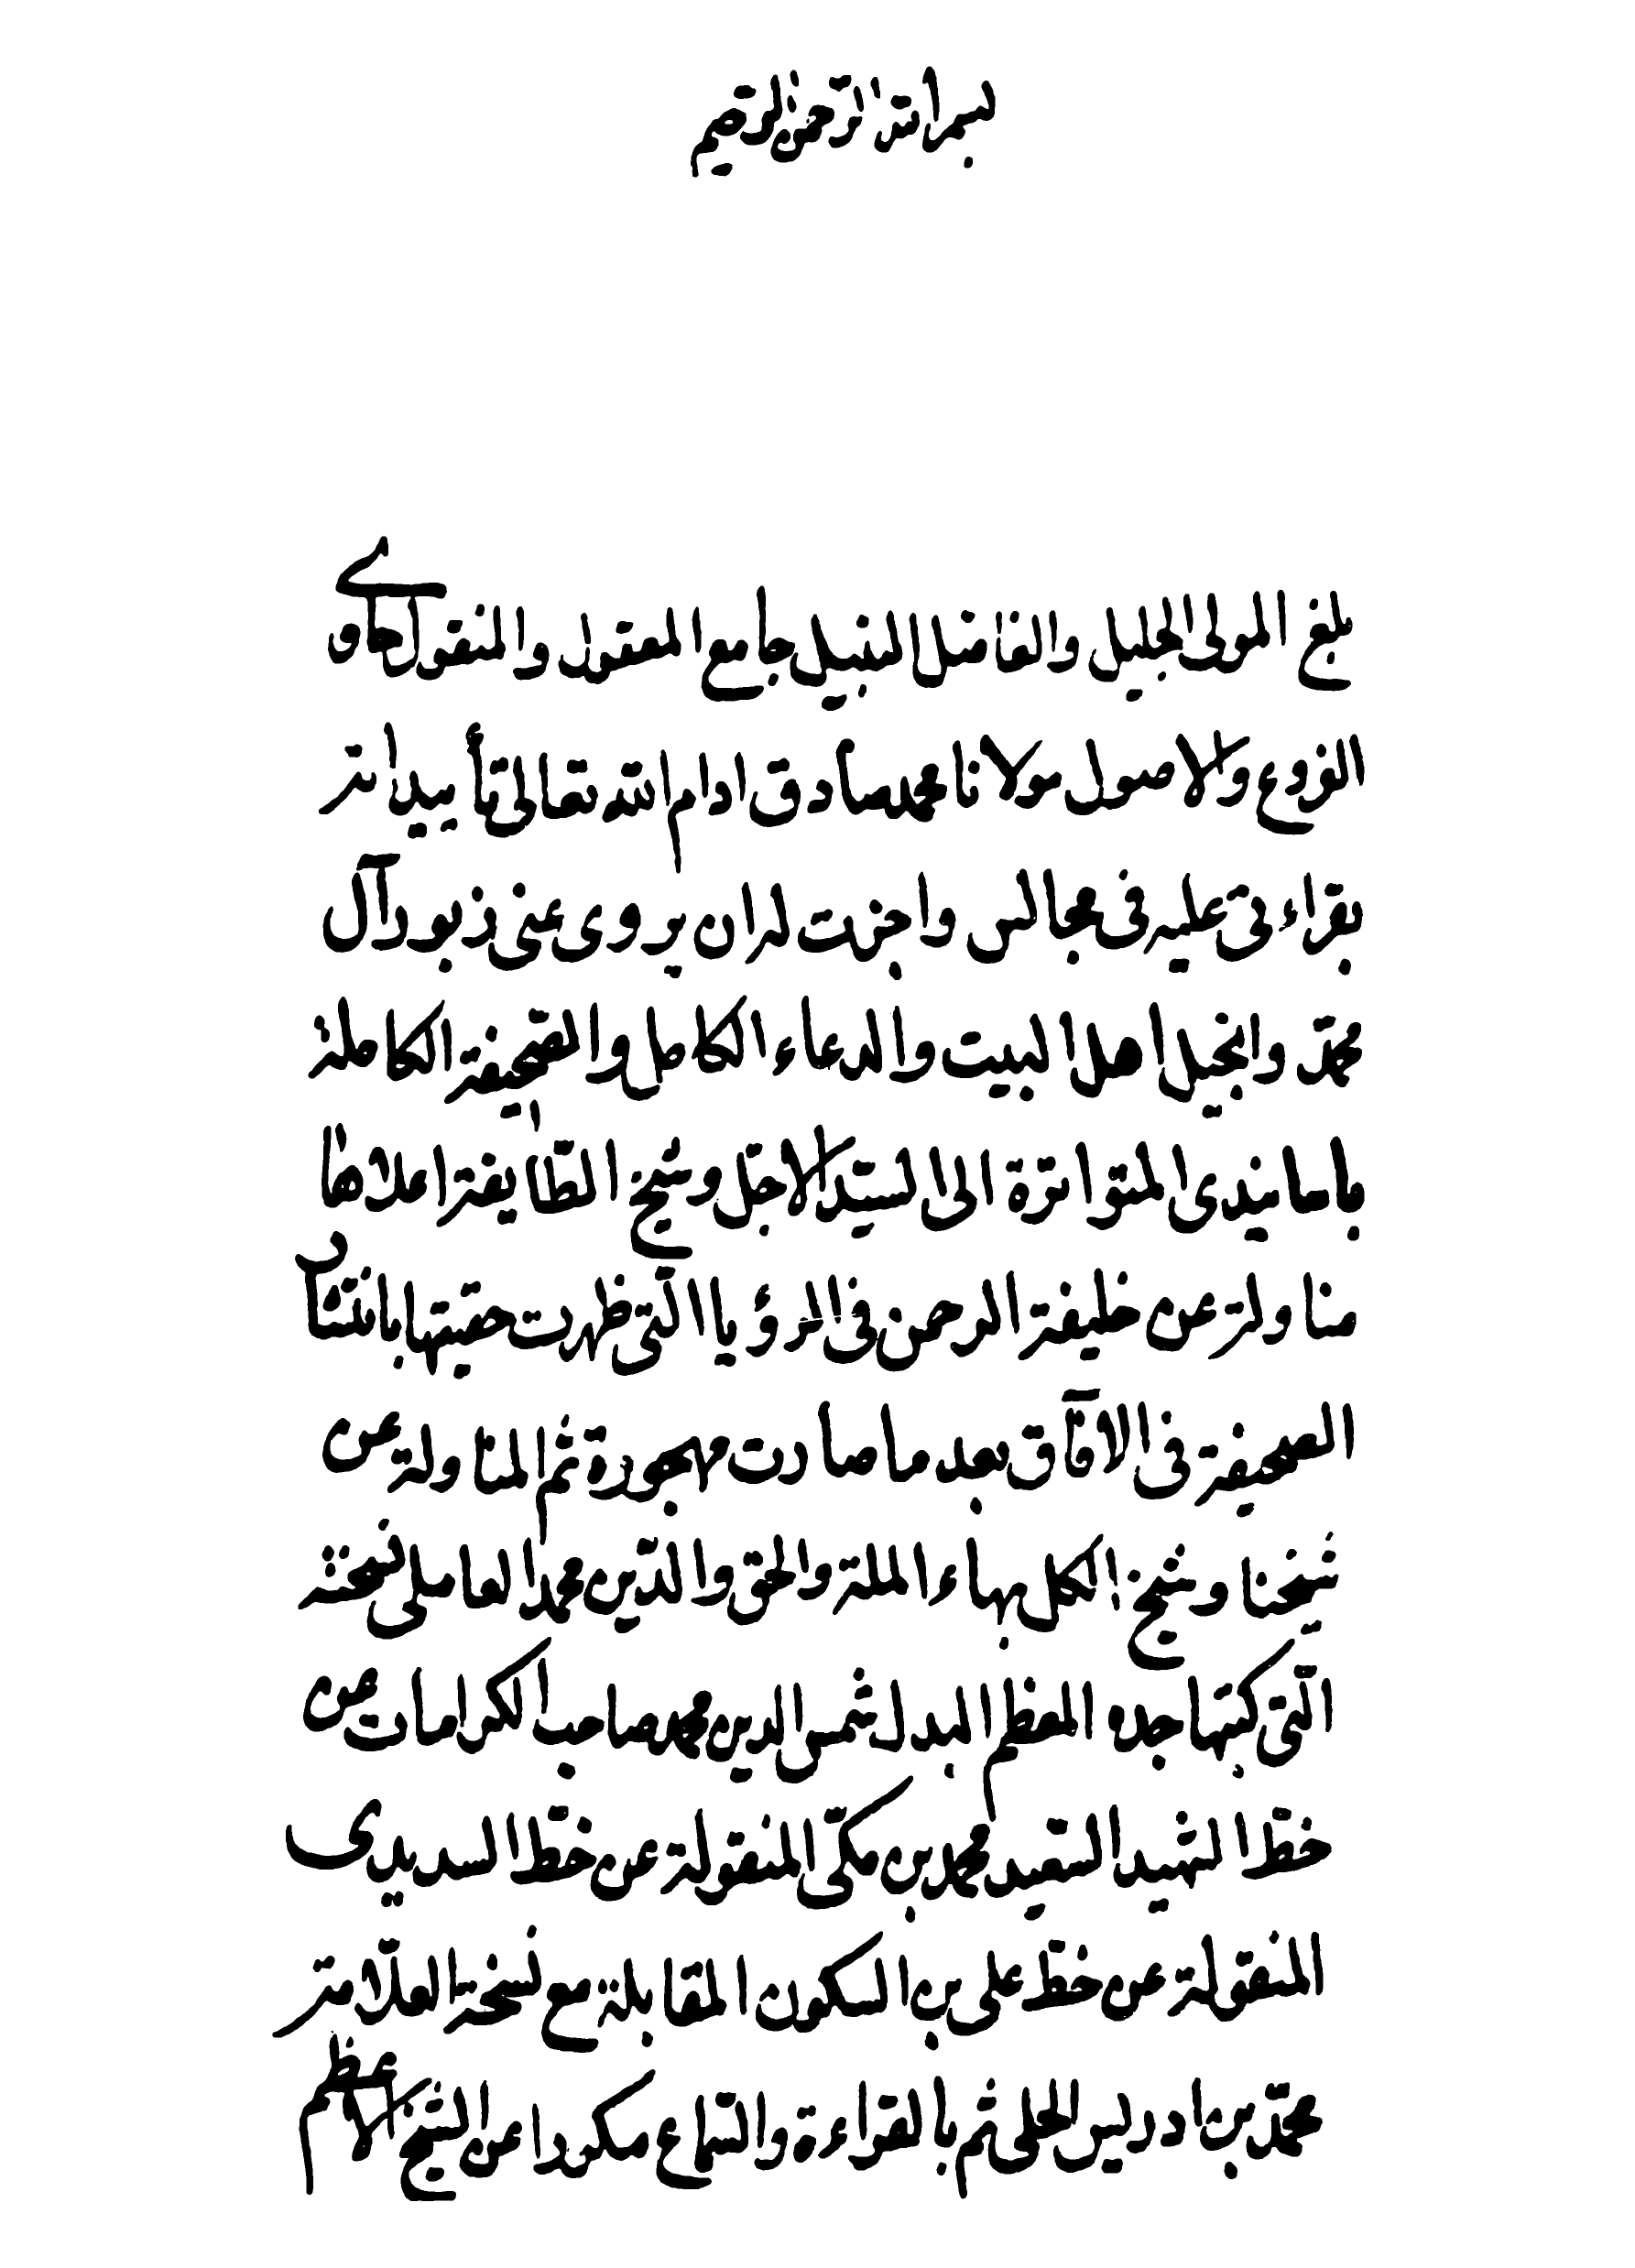 بسم الله الرحمن الرحيم
بلغ المولى الجليل والفاضل النبيل جامع المعقول والمنقول حاوي
الفروع والاصول مولانا محمد صادق ادام الله تعالى تأييداته
بقراءتي عليه في مجالس واجزت له ان يروى عني زبور آل
محمّد وانجيل اهل البيت والدعاء الكامل والصّحيفة الكاملة
باسانيدى المتواترة الى السيّد الاجلّ وشيخ الطّايفة اعلاها
مناولة عن خليفة الرحمن في الرؤيا الّتي ظهرت حقيّتها بانتشار
الصحيفة في الآفاق بعد ما صارت مهجورة ثم المناولة عن
شيخنا وشيخ الكل بهاء الملة والحق والدّين محمد العاملي نسخته
الّتي كتبها جده المعظم البدل شمس الدين محمد صاحب الكرامات من
خطّ الشهيد السّعيد محمد بن مكّي المنقولة عن خطّ السديدى
المنقولة عن خطّ علي بن السكون المقابلة مع نسخة العلّامة
محمّد بن ادريس الحلي ثم بالقراءة والسّماع مكررا عن الشيخ الاعظم